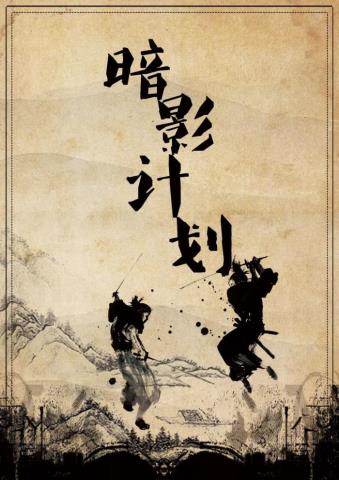 暗影计划